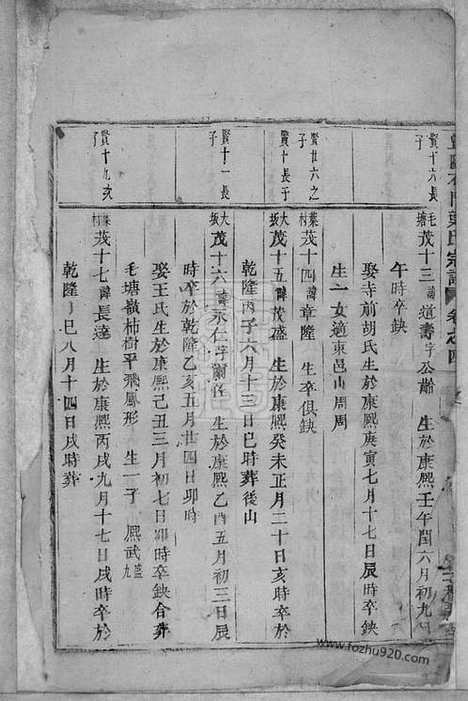 氏宗譜 卷之四
賢十六長子
毛塘茂十三諱道壽字公齡 生於康熙壬午閏六月初九
午時卒缺
娶寺前胡氏生於康熙庚寅七月十七日辰時卒缺
生一女適東邑山周周
賢廿六之子
葉村茂十四諱章隆 生卒俱缺
賢十長子
茂十五諱茂盛 生於康熙癸未正月二十日亥時卒於
乾隆丙子六月十三日巳時葬後山
賢十一長子
大坂茂十六諱永仁字蘭 生於康熙乙酉五月初三日辰
時卒於乾隆乙亥五月廿四日卯時
娶王氏生於康熙己丑三月初七日卯時卒缺合葬
毛塘嶺柿樹平飛鳳形 生一子 熙武盛九
賢十九次子
葉村茂十七諱長達 生於康熙丙戌九月十七日戌時卒於
乾隆辛巳八月十四日戌時葬
www.fozhu920.com